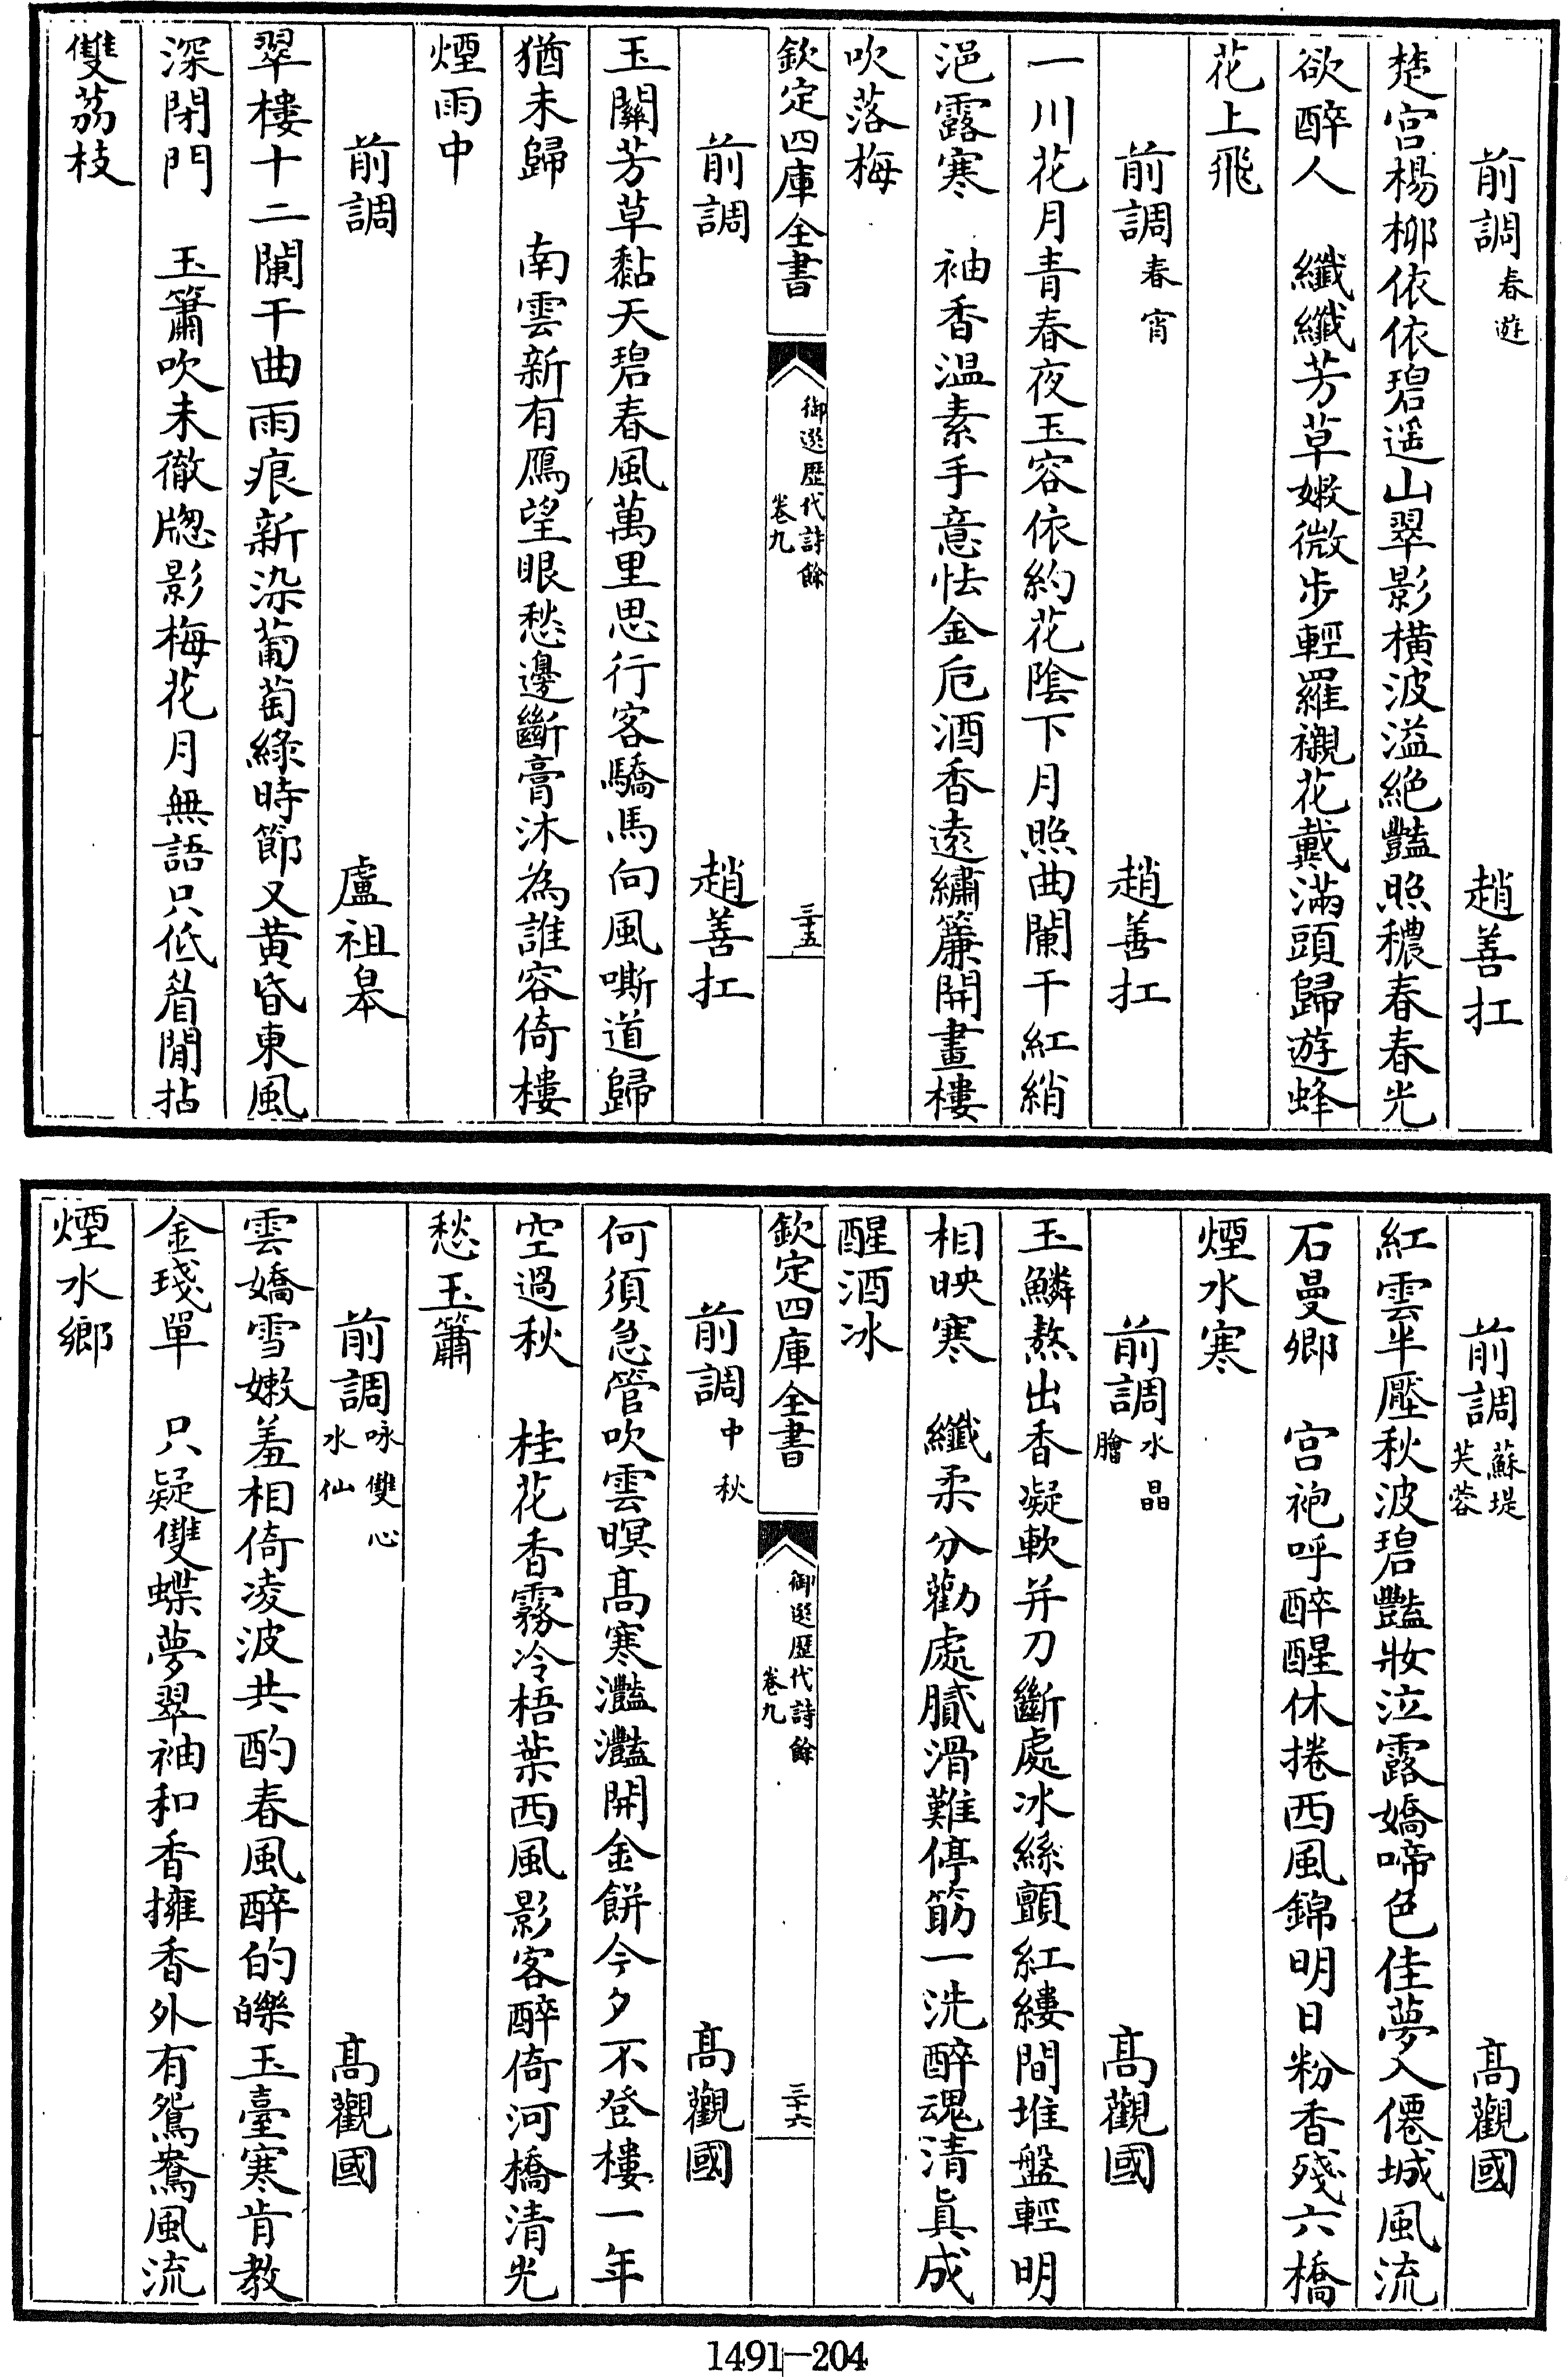 前調春遊　趙善扛
楚宮楊柳依依碧遥山翠影橫波溢絶豔照穠春春光
欲醉人　纖纖芳草嫩微步輕羅襯花戴滿頭歸遊蜂
花上飛
前調春宵　趙善扛
一川花月青春夜玉容依約花陰下月照曲闌干紅綃
浥露寒　袖香温素手意怯金卮酒香遠繡簾開畫樓
吹落梅
欽定四庫全書
御選歴代詩餘
卷九
三十五
前調　趙善扛
玉關芳草黏天碧春風萬里思行客驕馬向風嘶道歸
猶未歸　南雲新有鴈望眼愁邊斷膏沐為誰容倚樓
煙雨中
前調　盧祖皋
翠樓十二闌干曲雨痕新染葡萄綠時節又黄昏東風
深閉門　玉簫吹未徹牕影梅花月無語只低眉閒拈
雙荔枝
前調蘇堤芙蓉　高觀國
紅雲半壓秋波碧豔妝泣露嬌啼色佳夢入僊城風流
石曼卿　宫袍呼醉醒休捲西風錦明日粉香殘六橋
煙水寒
前調水晶膾　高觀國
玉鱗熬出香凝軟并刀斷處冰絲顫紅縷間堆盤輕明
相映寒　纖柔分勸處膩滑難停筯一洗醉魂清真成
醒酒冰
欽定四庫全書
御選歴代詩餘
卷九
三十六
前調中秋　高觀國
何須急管吹雲暝高寒灔灔開金餅今夕不登樓一年
空過秋　桂花香霧冷梧葉西風影客醉倚河橋清光
愁玉簫
前調咏雙心水仙　高觀國
雲嬌雪嫩羞相倚凌波共酌春風醉的皪玉臺寒肯教
金琖單　只疑雙蝶夢翠袖和香擁香外有鴛鴦風流
煙水鄉
1491—204